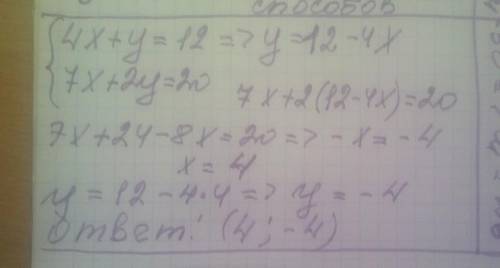 способов
{4x+y=12 => y=12-4x
7x+2y=20
7x+2(12-4x)=20
7x+24-8x=20 => -x=-4
x=4
y=12-4·4 => y=-4
Ответ: (4;-4)